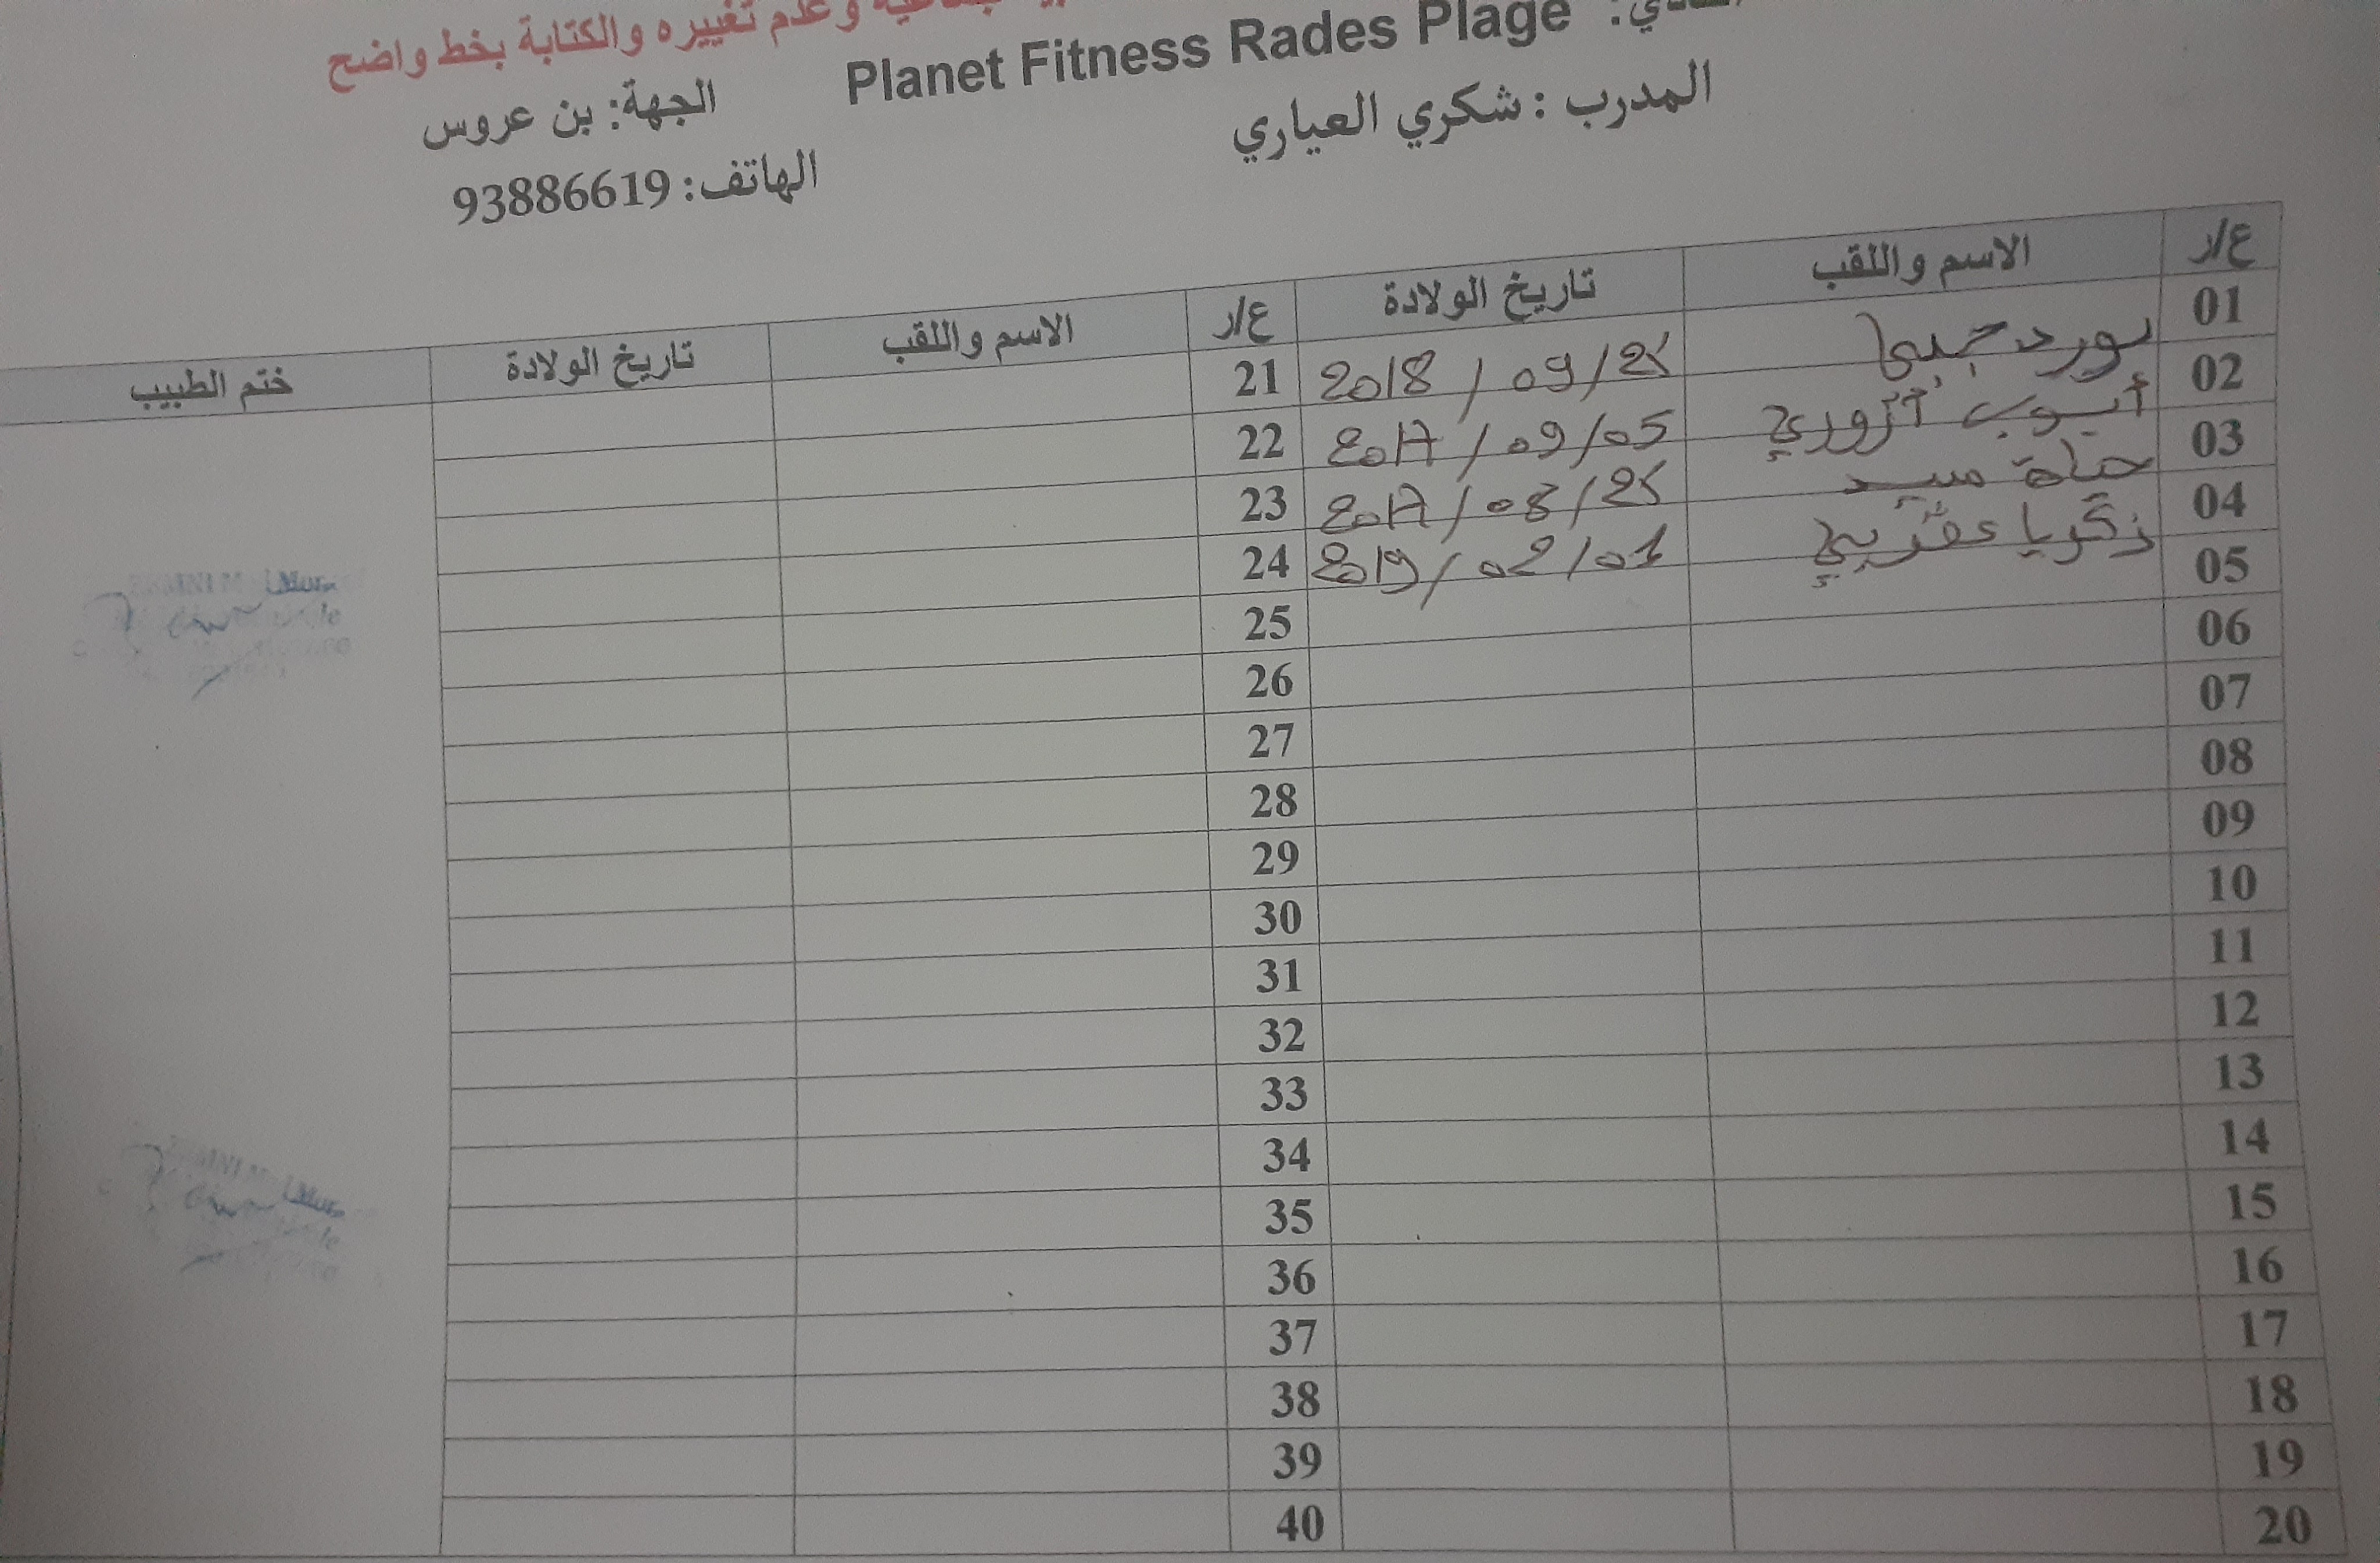 وعدم تغييره والكتابة بخط واضح
Planet Fitness Rades Plage
الجهة: بن عروس
المدرب : شكري العياري
الهاتف: 93886619
ع/ر الاسم واللقب تاريخ الولادة ع/ر الاسم واللقب تاريخ الولادة ختم الطبيب
01 21 2018 / 09 /
02 أيوب 2017 / 09 / 05 22
03 2017 / 08 / 23
04 زكريا 2019 / 02 / 01 24
05 25
06 26
07 27
08 28
09 29
10 30
11 31
12 32
13 33
14 34
15 35
16 36
17 37
18 38
19 39
20 40